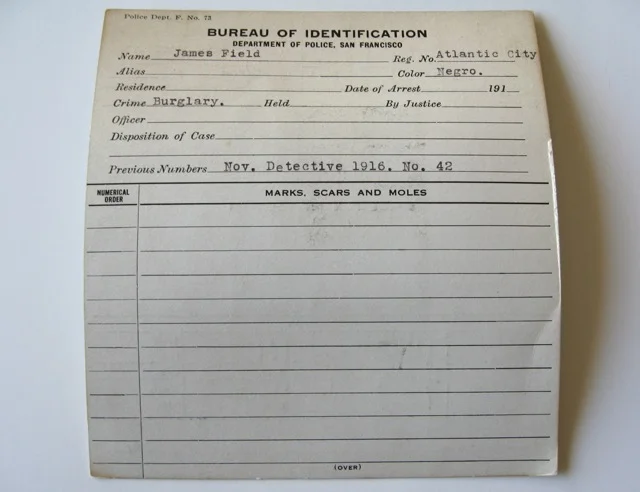 Police Dept. F. No. 73
BUREAU OF IDENTIFICATION
DEPARTMENT OF POLICE, SAN FRANCISCO
Name James Field Reg. No. Atlantic City
Alias Color Negro.
Residence Date of Arrest 191
Crime Burglary. Held By Justice
Officer
Disposition of Case
Previous Numbers Nov. Detective 1916. No. 42
NUMERICAL ORDER MARKS, SCARS AND MOLES
(OVER)